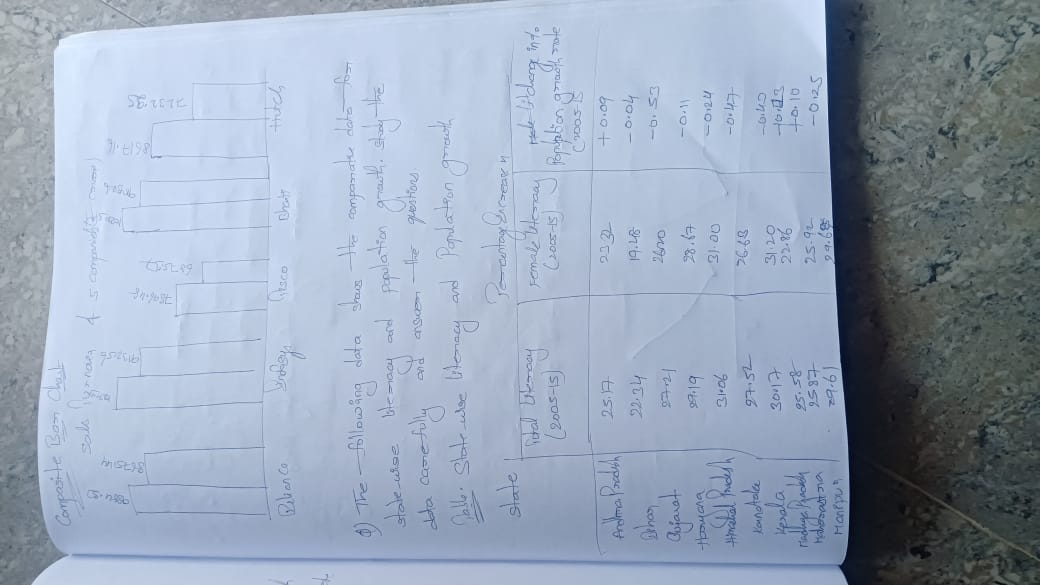 Composite Bar Chart
Sale / Month of 5 companies
9675.4
9132.56
7896.45
6875.57
9132.6
8617.16
7232.95
Infosys
Bharti
Hutch
Q) The following data shows the comparative data for
state-wise literacy and population growth. study the
data carefully and answer the questions
Table. State wise literacy and Population growth
State Percentage Increase in
Total literacy (2005-15) Female literacy (2005-15) change in % Population growth rate (2005-15)
Andhra Pradesh 25.17 22.32 +0.09
Bihar 22.34 19.48 -0.04
Gujarat 27.21 26.20 -0.53
Haryana 29.19 28.67 -0.11
Himachal Pradesh 31.06 31.00 -0.24
Karnataka 27.52 26.68 -0.47
Kerala 30.17 31.20 -0.40
Madhya Pradesh 25.58 22.86
Maharastra 25.87 25.92 +0.10
Manipur 29.61 -0.125